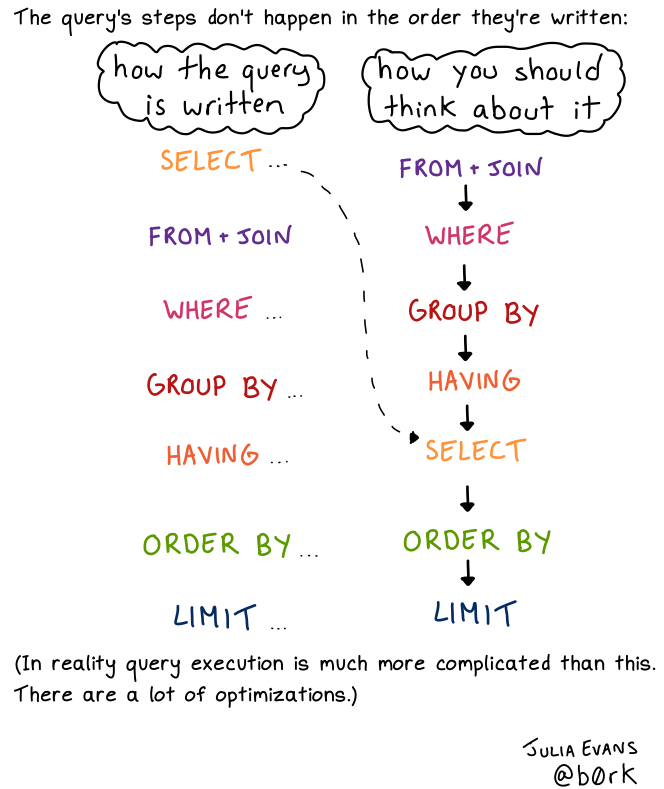 The query's steps don't happen in the order they're written:
how the query
is written
SELECT ...
FROM + JOIN
WHERE ...
GROUP BY ...
HAVING ...
ORDER BY ...
LIMIT ...
how you should
think about it
FROM + JOIN
WHERE
GROUP BY
HAVING
SELECT
ORDER BY
LIMIT
(In reality query execution is much more complicated than this.
There are a lot of optimizations.)
JULIA EVANS
@b0rk